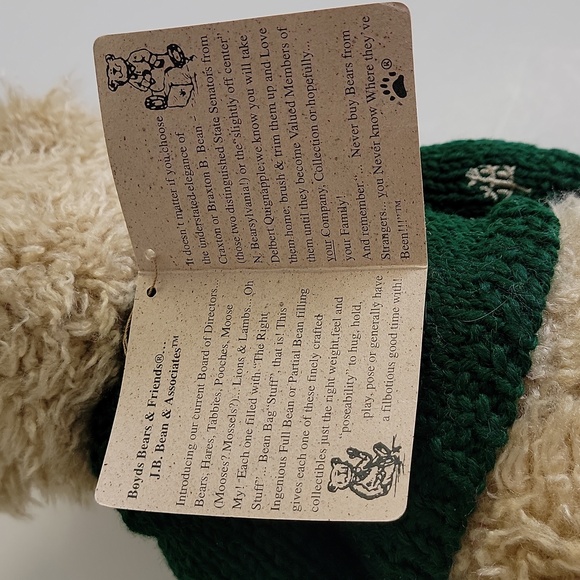 Boyds Bears & Friends®...
J.B. Bean & Associates™
Introducing our current Board of Directors...
Bears, Hares, Tabbies, Pooches, Moose
(Mooses? Mossels?)... Lions & Lambs...Oh
My! Each one filled with "The Right
Stuff"... Bean Bag "Stuff", that is! This
Ingenious Full Bean or Partial Bean filling
gives each one of these finely crafted
collectibles just the right weight, feel and
"poseability" to hug, hold,
play, pose or generally have
a filbotious good time with!
It doesn't matter if you choose
the understated elegance of
Craxton or Braxton B. Bean
(those two distinguished State Senators from
N. Bearsylvania!) or the "slightly off center"
Delbert Quignapple, we know you will take
them home, brush & trim them up and Love
them until they become Valued Members of
your Company, Collection or hopefully...
your Family!
And remember.... Never buy Bears from
Strangers.. you Never know Where they've
Been!!!"™
®